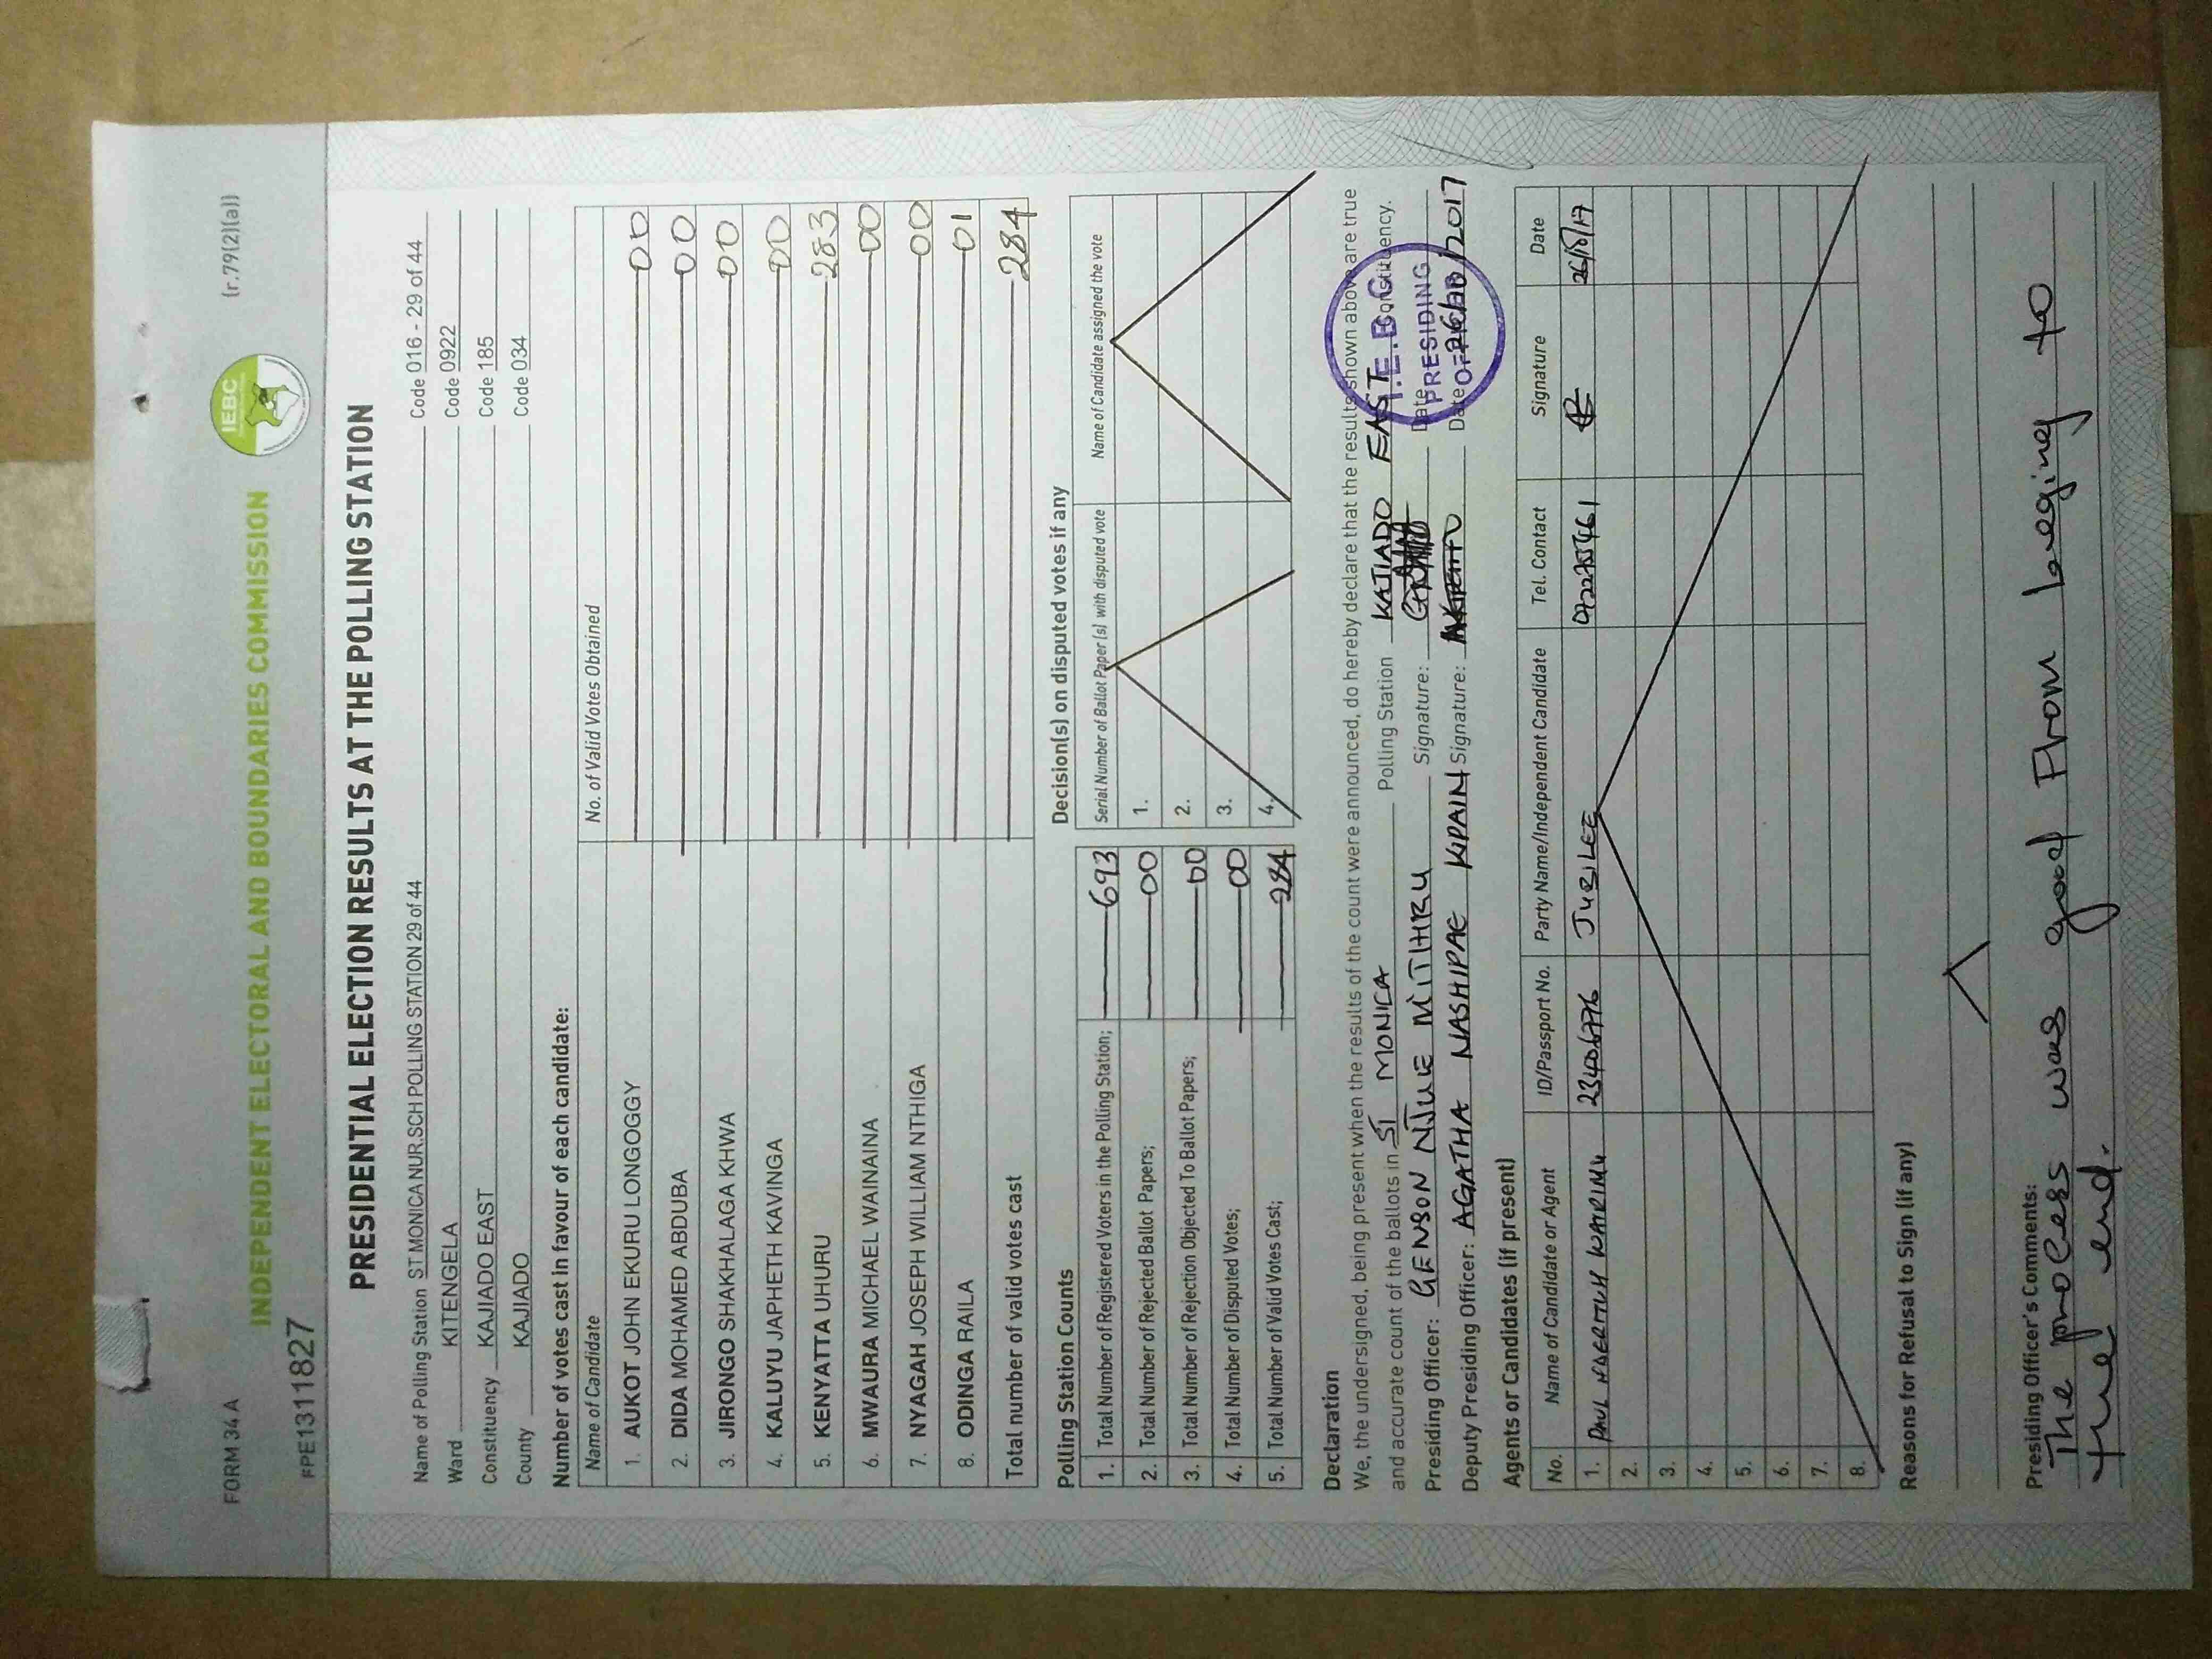 FORM 34 A
(r.79(2)(a))
IEBC
INDEPENDENT ELECTORAL AND BOUNDARIES COMMISSION
FPE1311827
PRESIDENTIAL ELECTION RESULTS AT THE POLLING STATION
Name of Polling Station ST MONICA NUR.SCH POLLING STATION 29 of 44 Code 016 - 29 of 44
Ward KITENGELA Code 0922
Constituency KAJIADO EAST Code 185
County KAJIADO Code 034
Number of votes cast in favour of each candidate:
Name of Candidate No. of Valid Votes Obtained
1. AUKOT JOHN EKURU LONGOGGY 00
2. DIDA MOHAMED ABDUBA 00
3. JIRONGO SHAKHALAGA KHWA 00
4. KALUYU JAPHETH KAVINGA 00
5. KENYATTA UHURU 283
6. MWAURA MICHAEL WAINAINA 00
7. NYAGAH JOSEPH WILLIAM NTHIGA 00
8. ODINGA RAILA 01
Total number of valid votes cast 284
Polling Station Counts
1. Total Number of Registered Voters in the Polling Station; 693
2. Total Number of Rejected Ballot Papers; 00
3. Total Number of Rejection Objected To Ballot Papers; 00
4. Total Number of Disputed Votes; 00
5. Total Number of Valid Votes Cast; 284
Decision(s) on disputed votes if any
Serial Number of Ballot Paper (s) with disputed vote Name of Candidate assigned the vote
1.
2.
3.
4.
Declaration
We, the undersigned, being present when the results of the count were announced, do hereby declare that the results shown above are true
and accurate count of the ballots in ST MONICA Polling Station KAJIADO EAST Constituency.
Presiding Officer: GENSON NJUE MITHRU Signature: Date
Deputy Presiding Officer: AGATHA NASHIPAE KIPAIN Signature: Date 26/10/2017
I.E.B.C
PRESIDING
OFFICER
Agents or Candidates (if present)
No. Name of Candidate or Agent ID/Passport No. Party Name/Independent Candidate Tel. Contact Signature Date
1. PAUL WARIMU 23406776 JUBILEE 26/10/17
2.
3.
4.
5.
6.
7.
8.
Reasons for Refusal to Sign (if any)
Presiding Officer's Comments:
The process was good From beging to
the end.